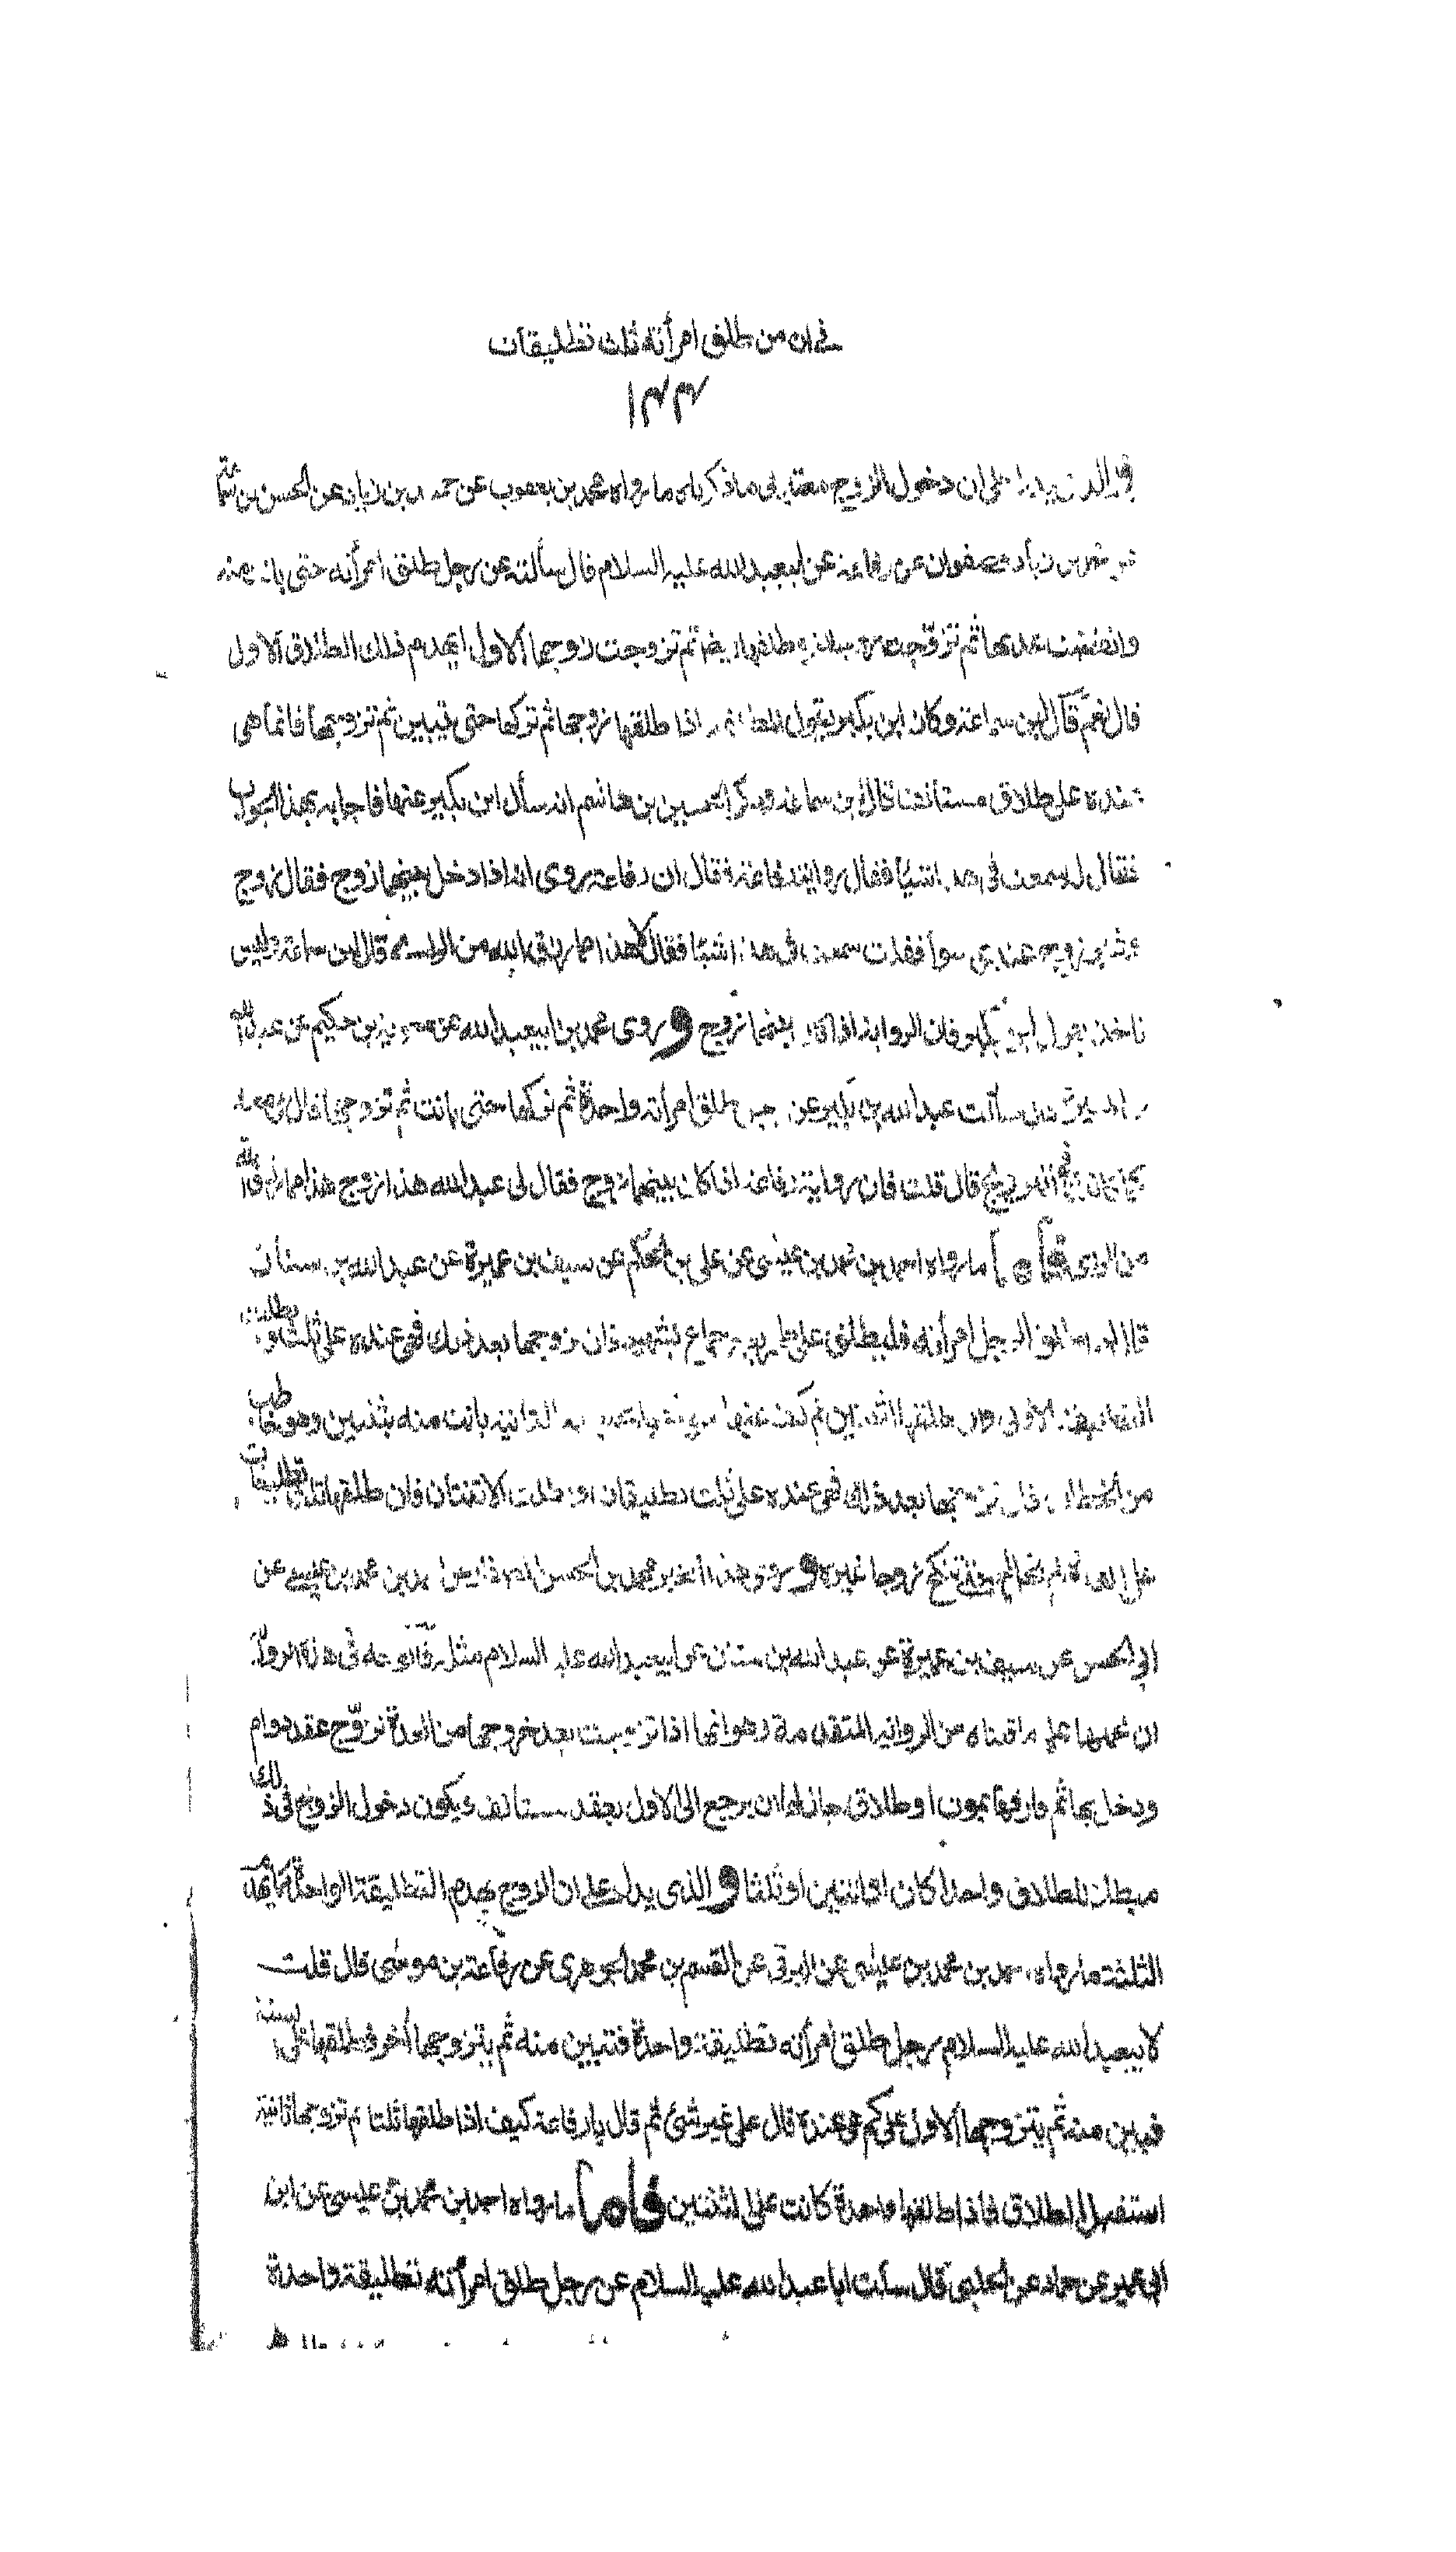 في ان من طلق امرأته ثلث تطليقات
١٤٤
والذي يدل على ان دخول الزوج معتبر في ما ذكرناه ما رواه محمد بن يعقوب عن حميد بن زياد عن الحسن بن
صفوان عن رفاعة عن ابيعبدالله عليه السلام قال سألته عن رجل طلق امرأته حتى بانت منه
وانقضت عدتها ثم تزوجت ثم تزوجت زوجها الاول ايهدم ذلك الطلاق الاول
قال نعم قال ابن سماعة وكان ابن بكير يقول المطلقة اذا طلقها زوجها ثم تركها حتى تبين ثم تزوجها فانما هي
عنده على طلاق مستأنف قال ابن سماعة وذكر الحسين بن هاشم انه سأل ابن بكير عنها فاجابه بهذا الجواب
فقال له سمعت في هذا شيئا فقال رواية رفاعة فقال ان رفاعة روى انه اذا دخل بينهما زوج فقال زوج
وغير زوج عندي سواء فقلت سمعت في هذا شيئا فقال لا هذا مما رزق الله من الراي قال ابن سماعة وليس
ناخذ بقول ابن بكير فان الرواية اذا كان بينهما زوج و روى محمد بن ابيعبدالله عن معوية بن حكيم عن عبدالله
بن المغيرة قال سألت عبدالله بن بكير عن رجل طلق امرأته واحدة ثم تركها حتى بانت ثم تزوجها قال هي معه
كما كانت في التزويج قال قلت فان رواية رفاعة اذا كان بينهما زوج فقال لي عبدالله هذا زوج هذا مما رزق الله
من الراي فاما ما رواه احمد بن محمد بن عيسى عن علي بن الحكم عن سيف بن عميرة عن عبدالله بن سنان
قال اذا طلق الرجل امرأته فليطلق على طهر بغير جماع بشهود فان تزوجها بعد ذلك فهي عنده على ثلث و
التطليقة الاولى وان طلقها اثنتين ثم كف عنها الثانية بانت منه بثنتين وهو خاطب
من الخطاب فان تزوجها بعد ذلك فهي عنده على ثلث تطليقات وبطلت الاثنتان فان طلقها ثلث تطليقات
على العدة لم تحل له حتى تنكح زوجا غيره و روى هذا الخبر محمد بن الحسن الصفار عن احمد بن محمد بن عيسى عن
ابي الحسن عن سيف بن عميرة عن عبدالله بن سنان عن ابيعبدالله عليه السلام مثله فالوجه في هذه الرواية
ان نحملها على ما قلناه من الرواية المتقدمة وهو انها اذا تزوجت بعد خروجها من العدة تزويج عقد دوام
ودخل بها ثم فارقها بموت او طلاق جاز لها ان يرجع الى الاول بعقد مستأنف ويكون دخول الزوج في ذلك
مبطلا للطلاق واحدا كان او اثنين او ثلثا و الذي يدل على ان الزوج يهدم التطليقة الواحدة كما يهدم
الثلثة ما رواه احمد بن محمد بن عيسى عن البرقي عن القسم بن محمد الجوهري عن رفاعة بن موسى قال قلت
لابيعبدالله عليه السلام رجل طلق امرأته تطليقة واحدة فتبين منه ثم يتزوجها آخر فطلقها على السنة
فتبين منه ثم يتزوجها الاول على كم هي عنده قال على غير شئ ثم قال يا رفاعة كيف اذا طلقها ثلثا ثم تزوجها ثانية
استقبل الطلاق فاذا طلقها واحدة كانت على اثنتين فاما ما رواه احمد بن محمد بن عيسى عن ابن
ابي عمير عن حماد عن الحلبي قال سألت ابا عبدالله عليه السلام عن رجل طلق امرأته تطليقة واحدة